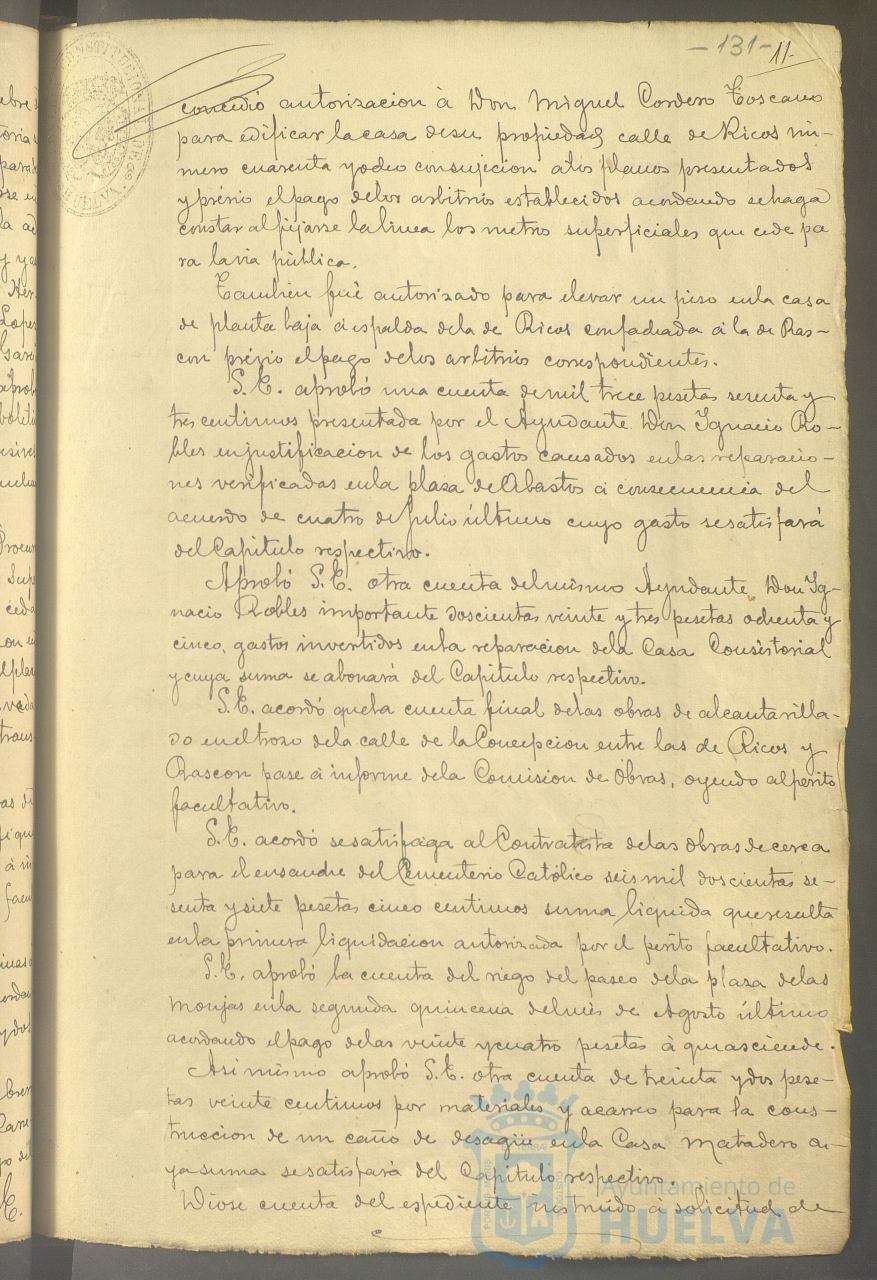 - 131 - 11.
concedió autorizacion à Don Miguel Cordero Toscano
para edificar la casa desu propiedad calle de Ricos nú-
mero cuarenta ydos consujecion alos planos presentados
y prévio elpago delos arbitrios establecidos acordando sehaga
constar alfijarse lalinea los metros superficiales que cede pa
ra lavia pública.
Tambien fué autorizado para elevar un piso enla casa
de planta baja á espalda dela de Ricos confachada á la de Ras-
con prévio elpago delos arbitrios correspondientes.
S. E. aprobó una cuenta demil trece pesetas sesenta y
tres centimos presentada por el Ayudante Don Ignacio Ro-
bles enjustificacion de los gastos causados enlas reparacio-
nes verificadas enla plaza de Abastos á consecuencia del
acuerdo de cuatro de Julio último cuyo gasto sesatisfará
del Capitulo respectivo.
Aprobó S. E. otra cuenta delmismo Ayudante Don Ig-
nacio Robles importante doscientas veinte y tres pesetas ochenta y
cinco, gastos invertidos enla reparacion dela Casa Consistorial
y cuya suma se abonará del Capitulo respectivo.
S. E. acordó quela cuenta final delas obras de alcantarilla-
do eneltrozo dela calle de la Concepcion entre las de Ricos y
Rascon pase á informe dela Comision de Obras, oyendo alperito
facultativo.
S. E. acordó sesatisfaga al Contratista delas Obras decerca
para el ensanche del Cementerio Católico seis mil doscientas se-
senta ysiete pesetas cinco centimos suma liquida queresulta
enla primera liquidacion autorizada por el perito facultativo.
S. E. aprobó la cuenta del riego del paseo dela plaza delas
Monjas enla segunda quincena delmes de Agosto último
acordando elpago delas veinte ycuatro pesetas à queasciende.
Asi mismo aprobó S. E. otra cuenta de treinta ydos pese-
tas veinte centimos por materiales y acarreo para la cons-
truccion de un caño de desagüe enla Casa Matadero cu-
ya suma sesatisfará del Capitulo respectivo.
Diose cuenta del espediente instruido á solicitud de
Ayuntamiento de
HUELVA